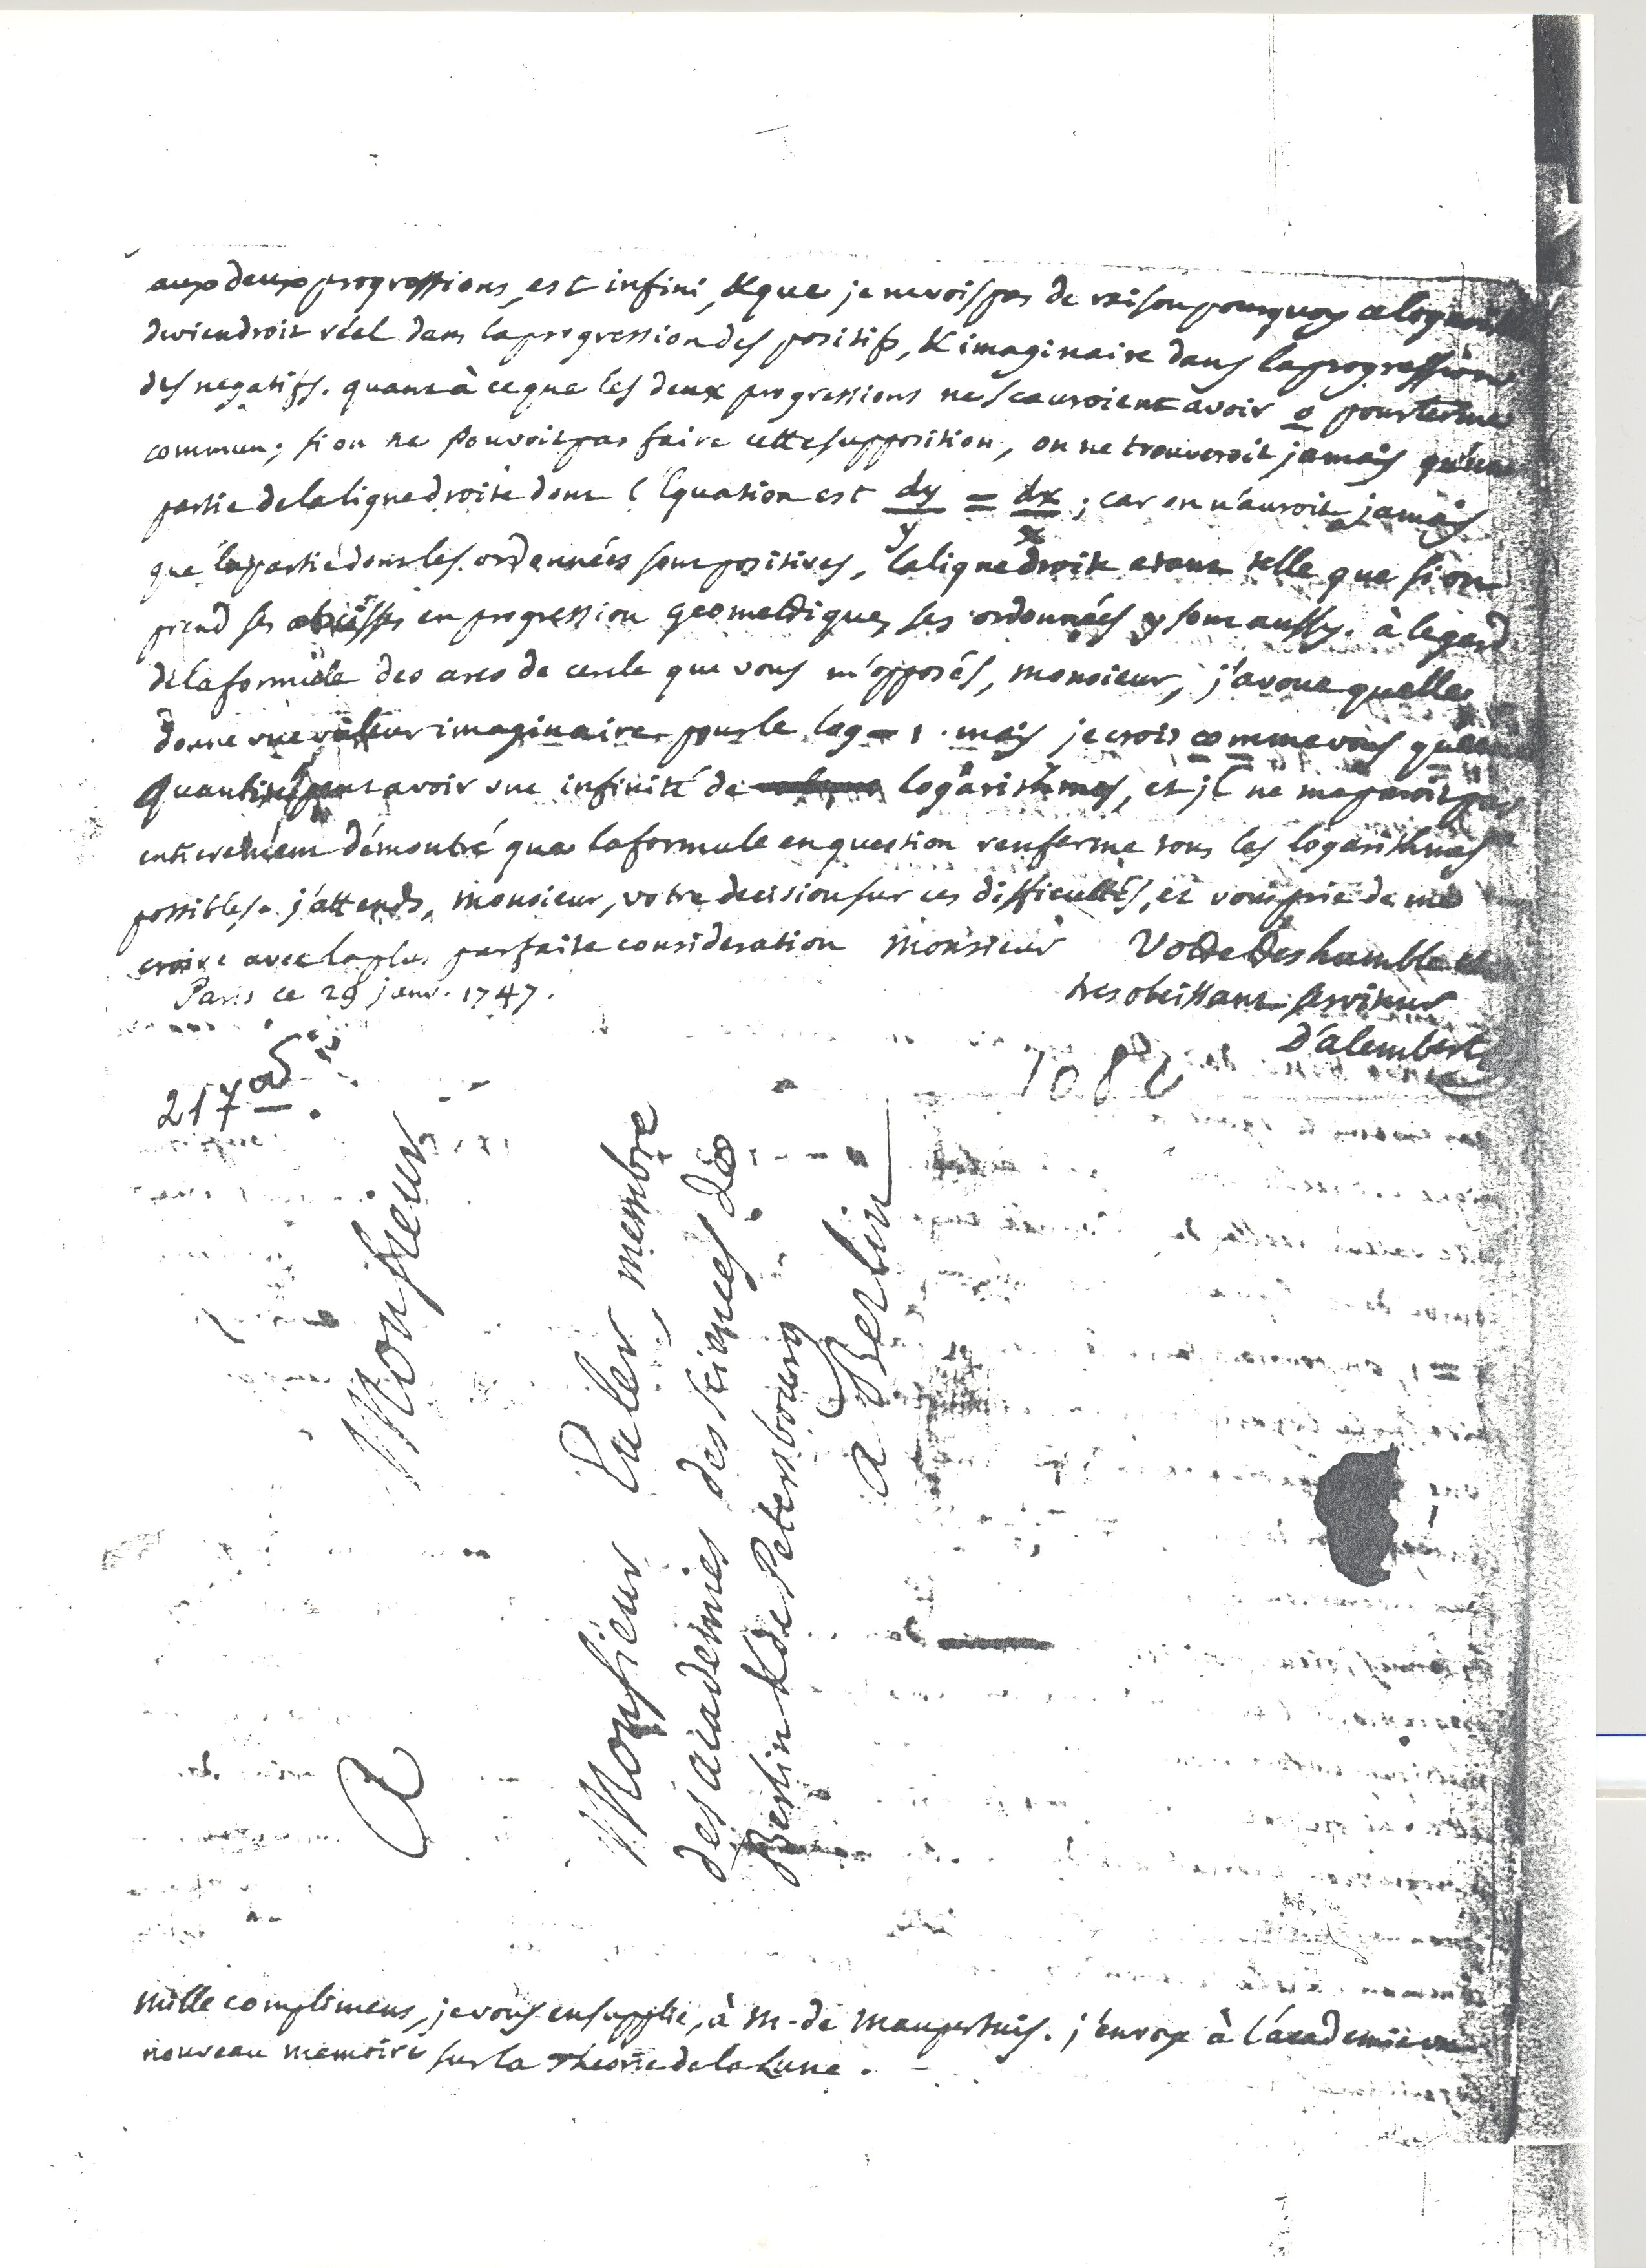 aux deux progressions, est infini, & que je ne vois pas de raison pourquoy ce logarith
deviendroit réel dans la progression des positifs, & imaginaire dans la progression
des negatifs. quant à ce que les deux progressions ne scauroient avoir 0 pour terme
commun; si on ne pouvoit pas faire cette supposition, on ne trouveroit jamais qu'une
partie de la ligne droite dont l'Equation est dy/y = dx/x ; car on n'auroit jamais
que la partie dont les ordonnées sont positives, la ligne droite etant telle que si on
prend ses abscisses en progression geometrique, ses ordonnées y sont aussy. à legard
de la formule des arcs de cercle que vous m'opposés, monsieur, j'avoue quelle
donne une valeur imaginaire pour le log - 1. mais je crois comme vous qu'une
quantité peut avoir une infinité de logarithmes, et il ne me paroit pas
entierement démontré que la formule en question renferme tous les logarithmes
possibles. j'attends, monsieur, votre decision sur ces difficultés, et vous prie de me
croire avec la plus parfaite consideration monsieur Votre tres humble et
tres obeissant serviteur
Paris ce 29 janv. 1747.
D'alembert
217
A Monsieur
Monsieur Euler, membre
des academies des sciences de
Berlin & de Petersbourg
a Berlin
mille complimens, je vous en supplie, à M. de Maupertuis. j'envoye à l'academie un
nouveau memoire sur la Theorie de la Lune.